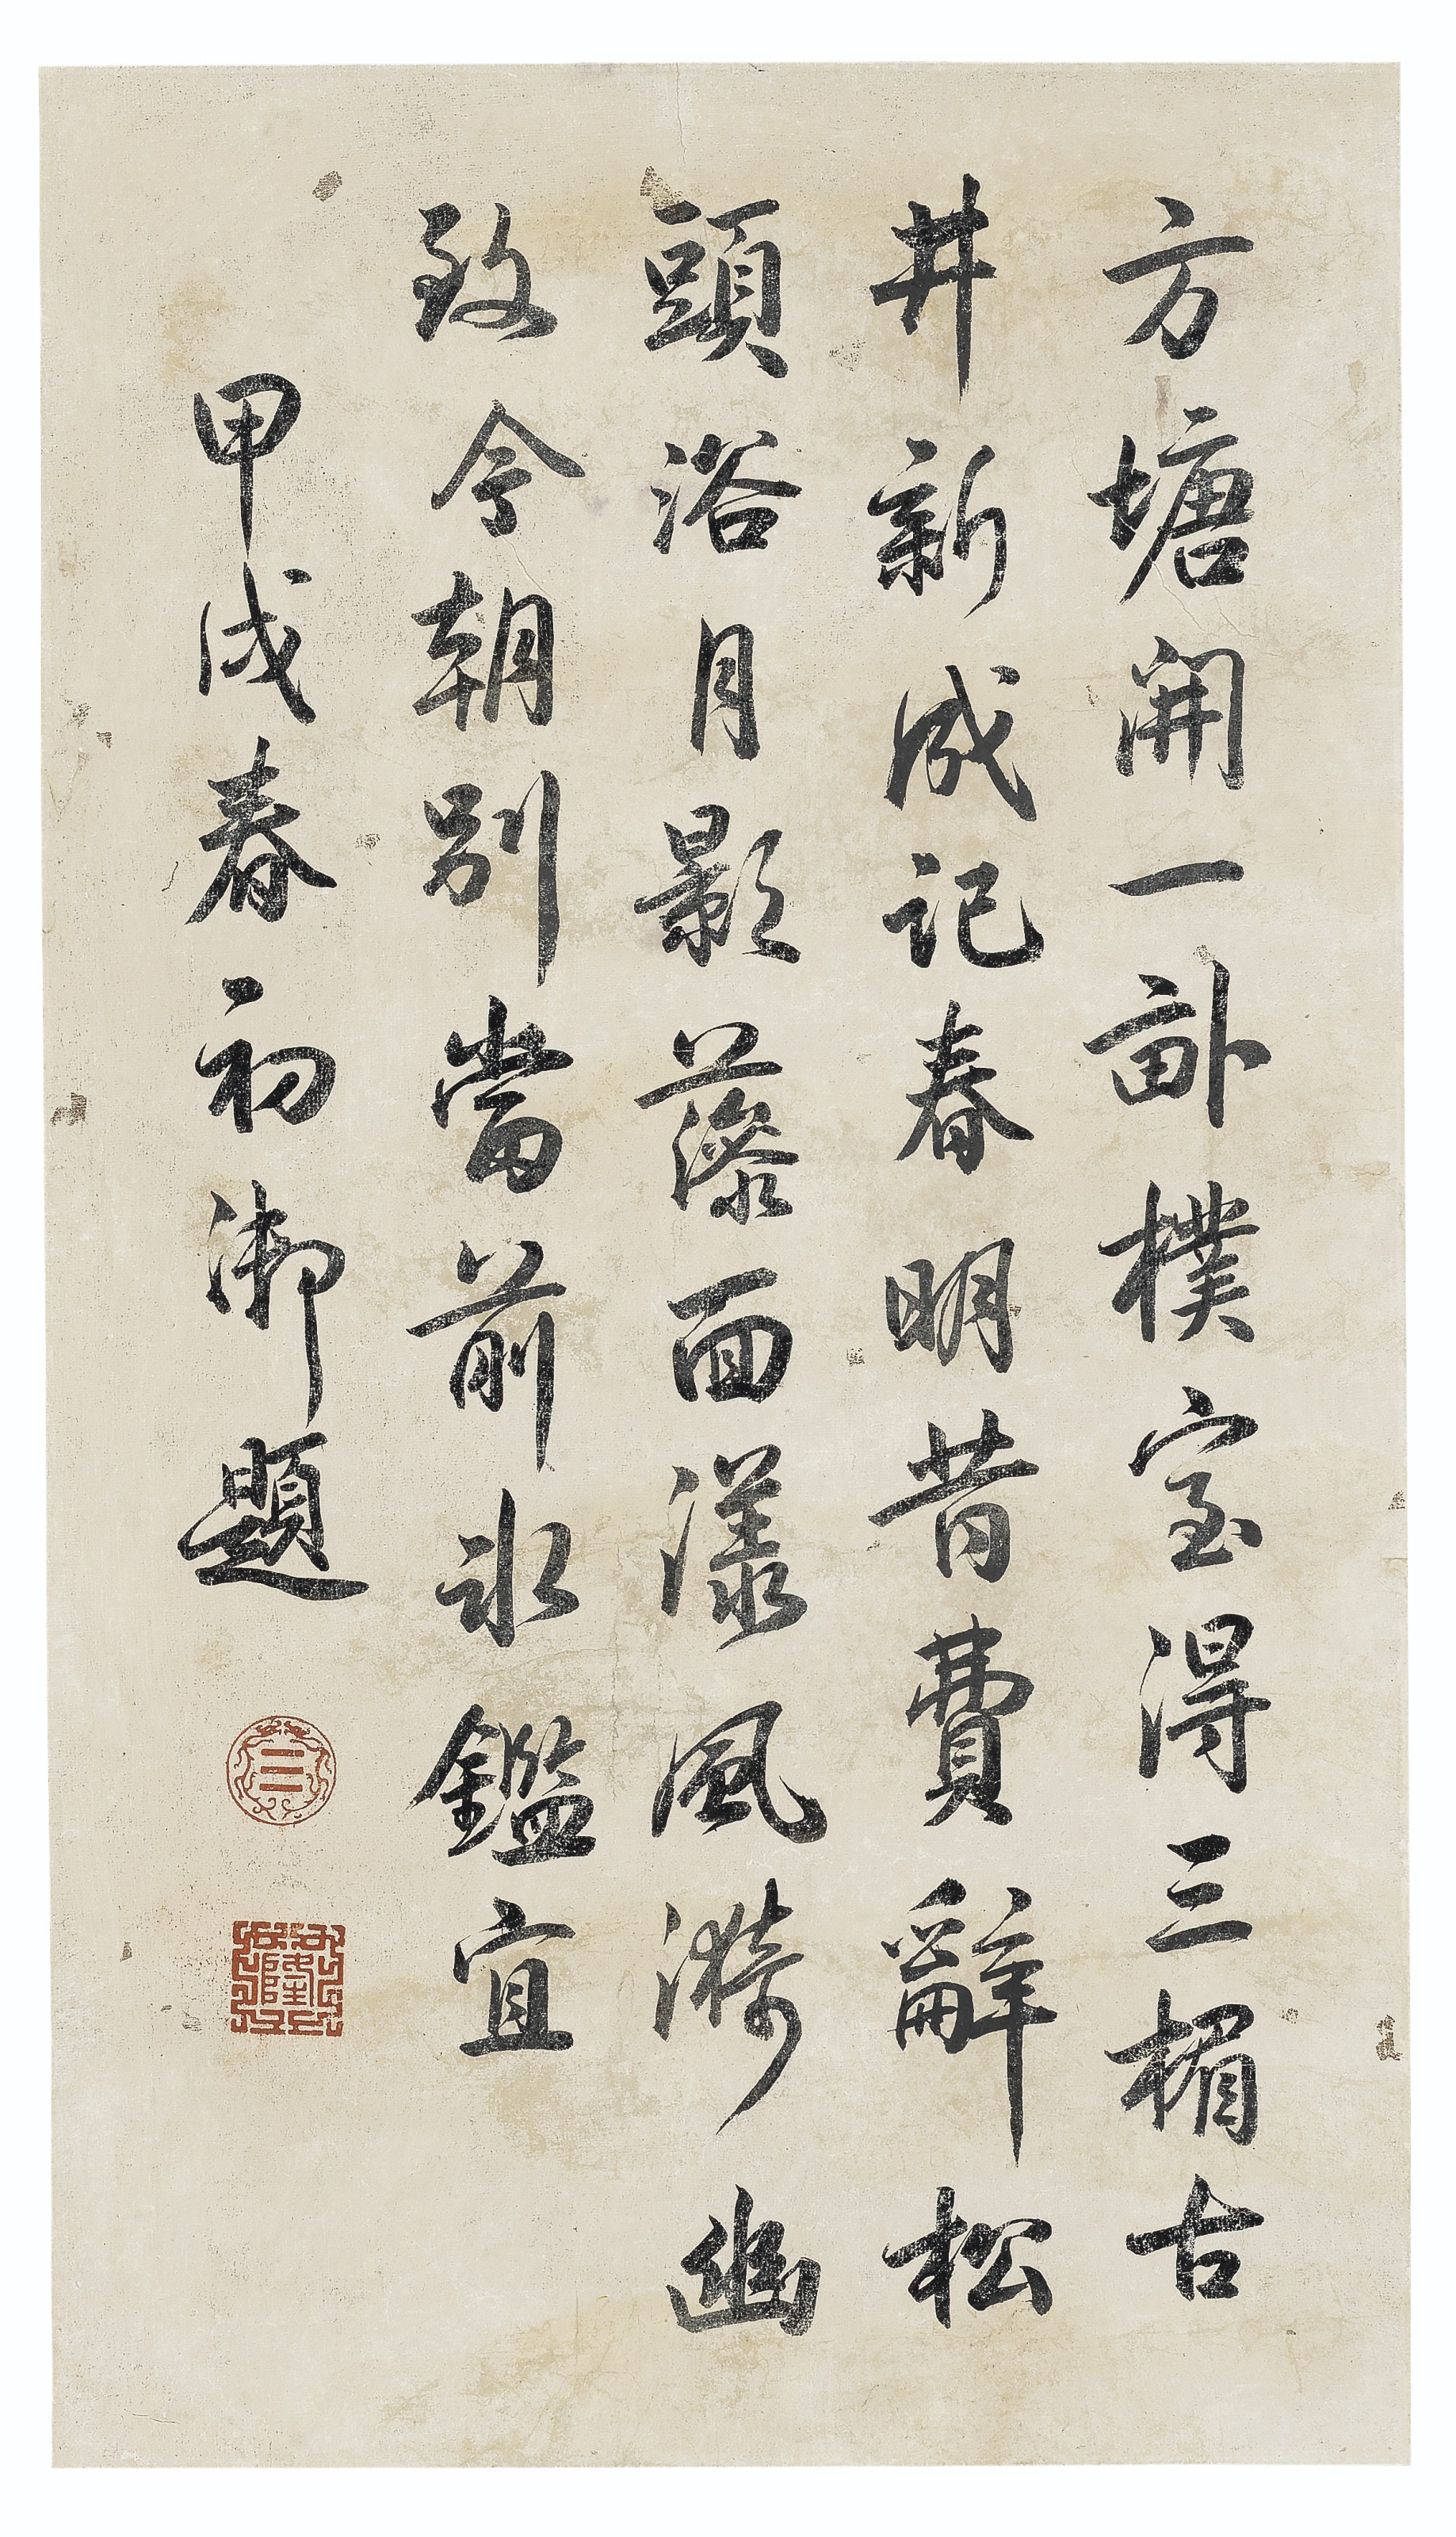 方塘開一畝樸室得三楣古
井新成記春明昔費辭松
頭浴月影蘂面漾風漪幽
致今朝別當前水鑑宜
甲戌春初御題
☰